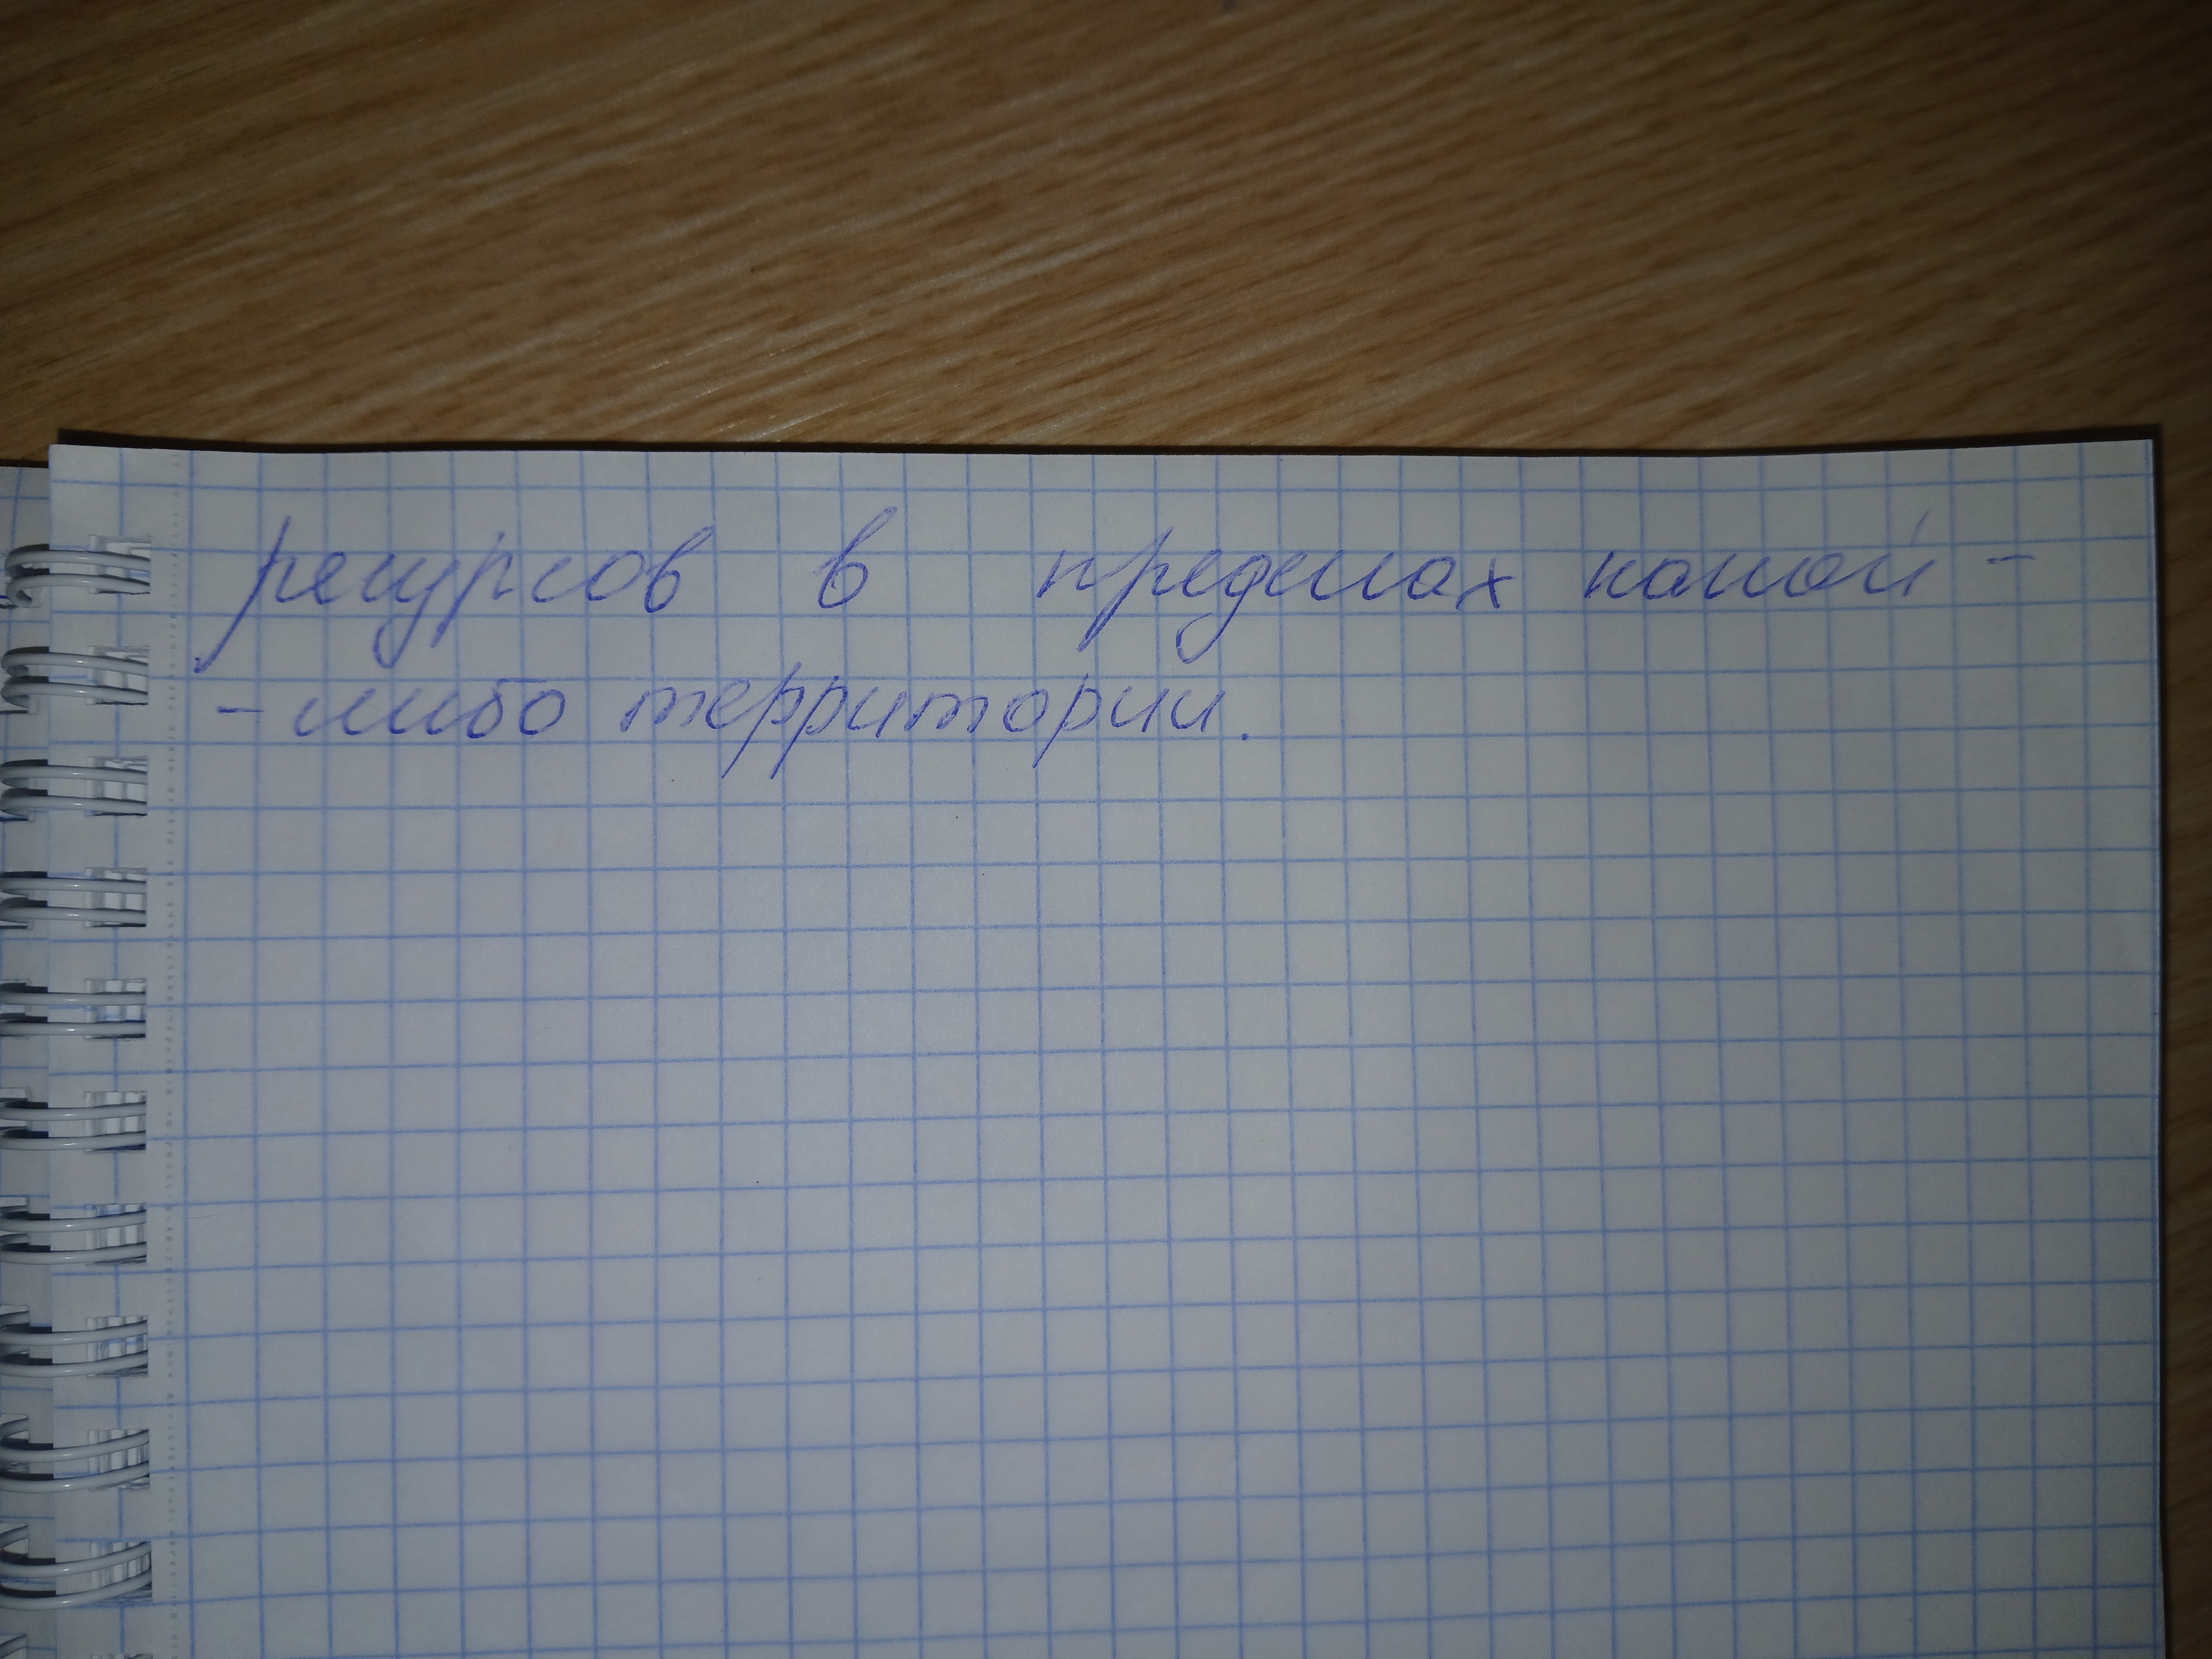 ресурсов в пределах какой-
-либо территории.